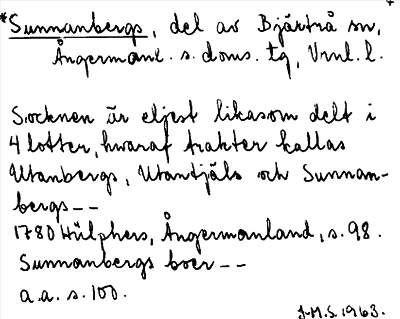 *Sunnanbergs, del av Bjärtrå sn,
Ångermanl. s. doms. tg, Vrnl. l.
Socknen är eljest likasom delt i
4 lotter, hwaraf trakter kallas
Utanbergs, Utantjäls och Sunnan-
bergs--
1780 Hülphers, Ångermanland, s. 98.
Sunnanbergs boer--
a.a. s. 100.
J.M.S. 1963.